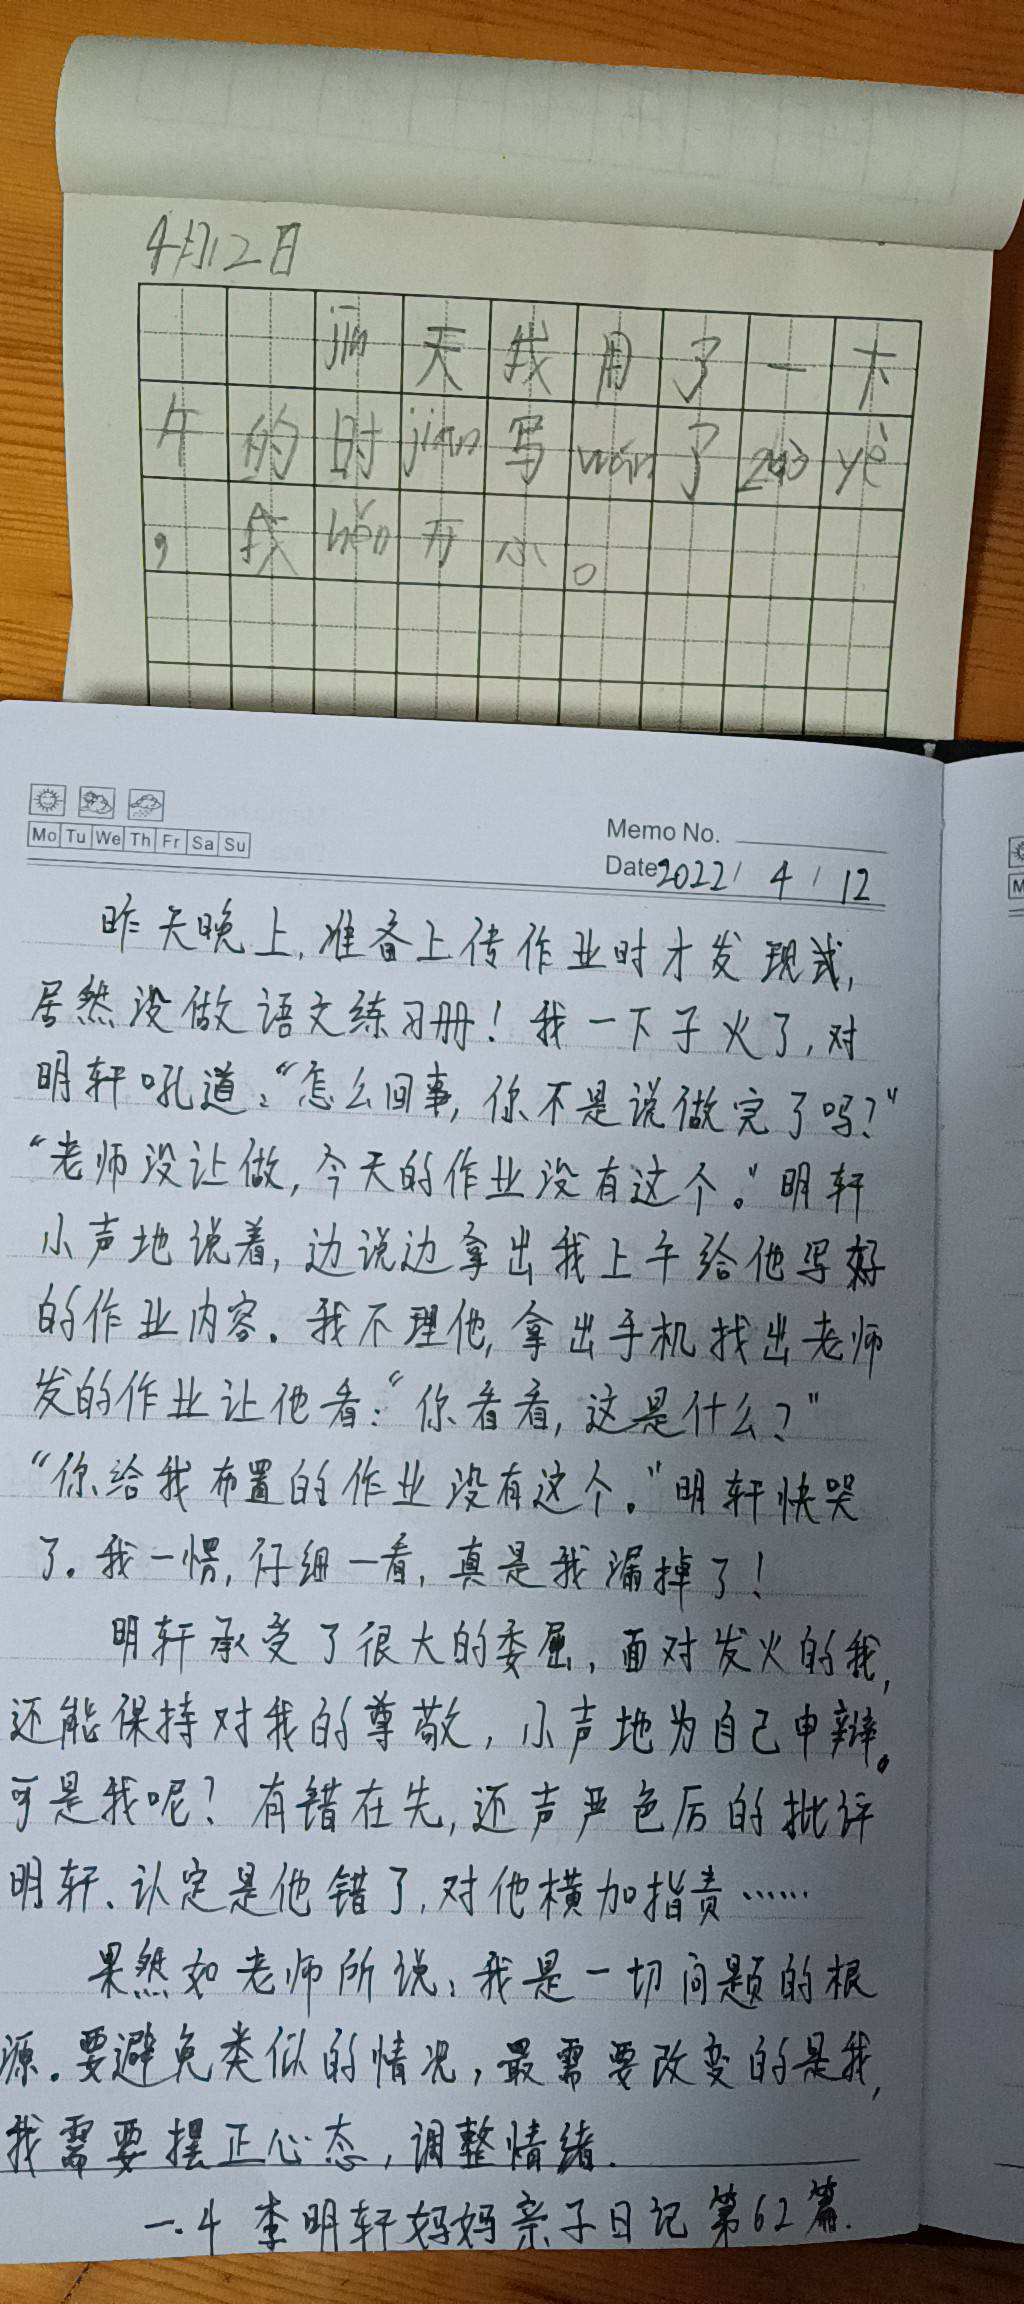 4月12日
jīn天我用了一下
午的时jiān写wán了zuò yè
，我hěn开心。
Mo Tu We Th Fr Sa Su
Memo No.
Date 2022/ 4 / 12
昨天晚上,准备上传作业时才发现我,
居然没做语文练习册！我一下子火了,对
明轩吼道:“怎么回事,你不是说做完了吗?”
“老师没让做,今天的作业没有这个。”明轩
小声地说着,边说边拿出我上午给他写好
的作业内容。我不理他,拿出手机找出老师
发的作业让他看:“你看看,这是什么?”
“你给我布置的作业没有这个。”明轩快哭
了。我一愣,仔细一看,真是我漏掉了!
明轩承受了很大的委屈,面对发火的我,
还能保持对我的尊敬,小声地为自己申辩。
可是我呢?有错在先,还声严色厉的批评
明轩、认定是他错了,对他横加指责……
果然如老师所说:我是一切问题的根
源.要避免类似的情况,最需要改变的是我,
我需要摆正心态,调整情绪.
一.4 李明轩妈妈亲子日记第62篇.